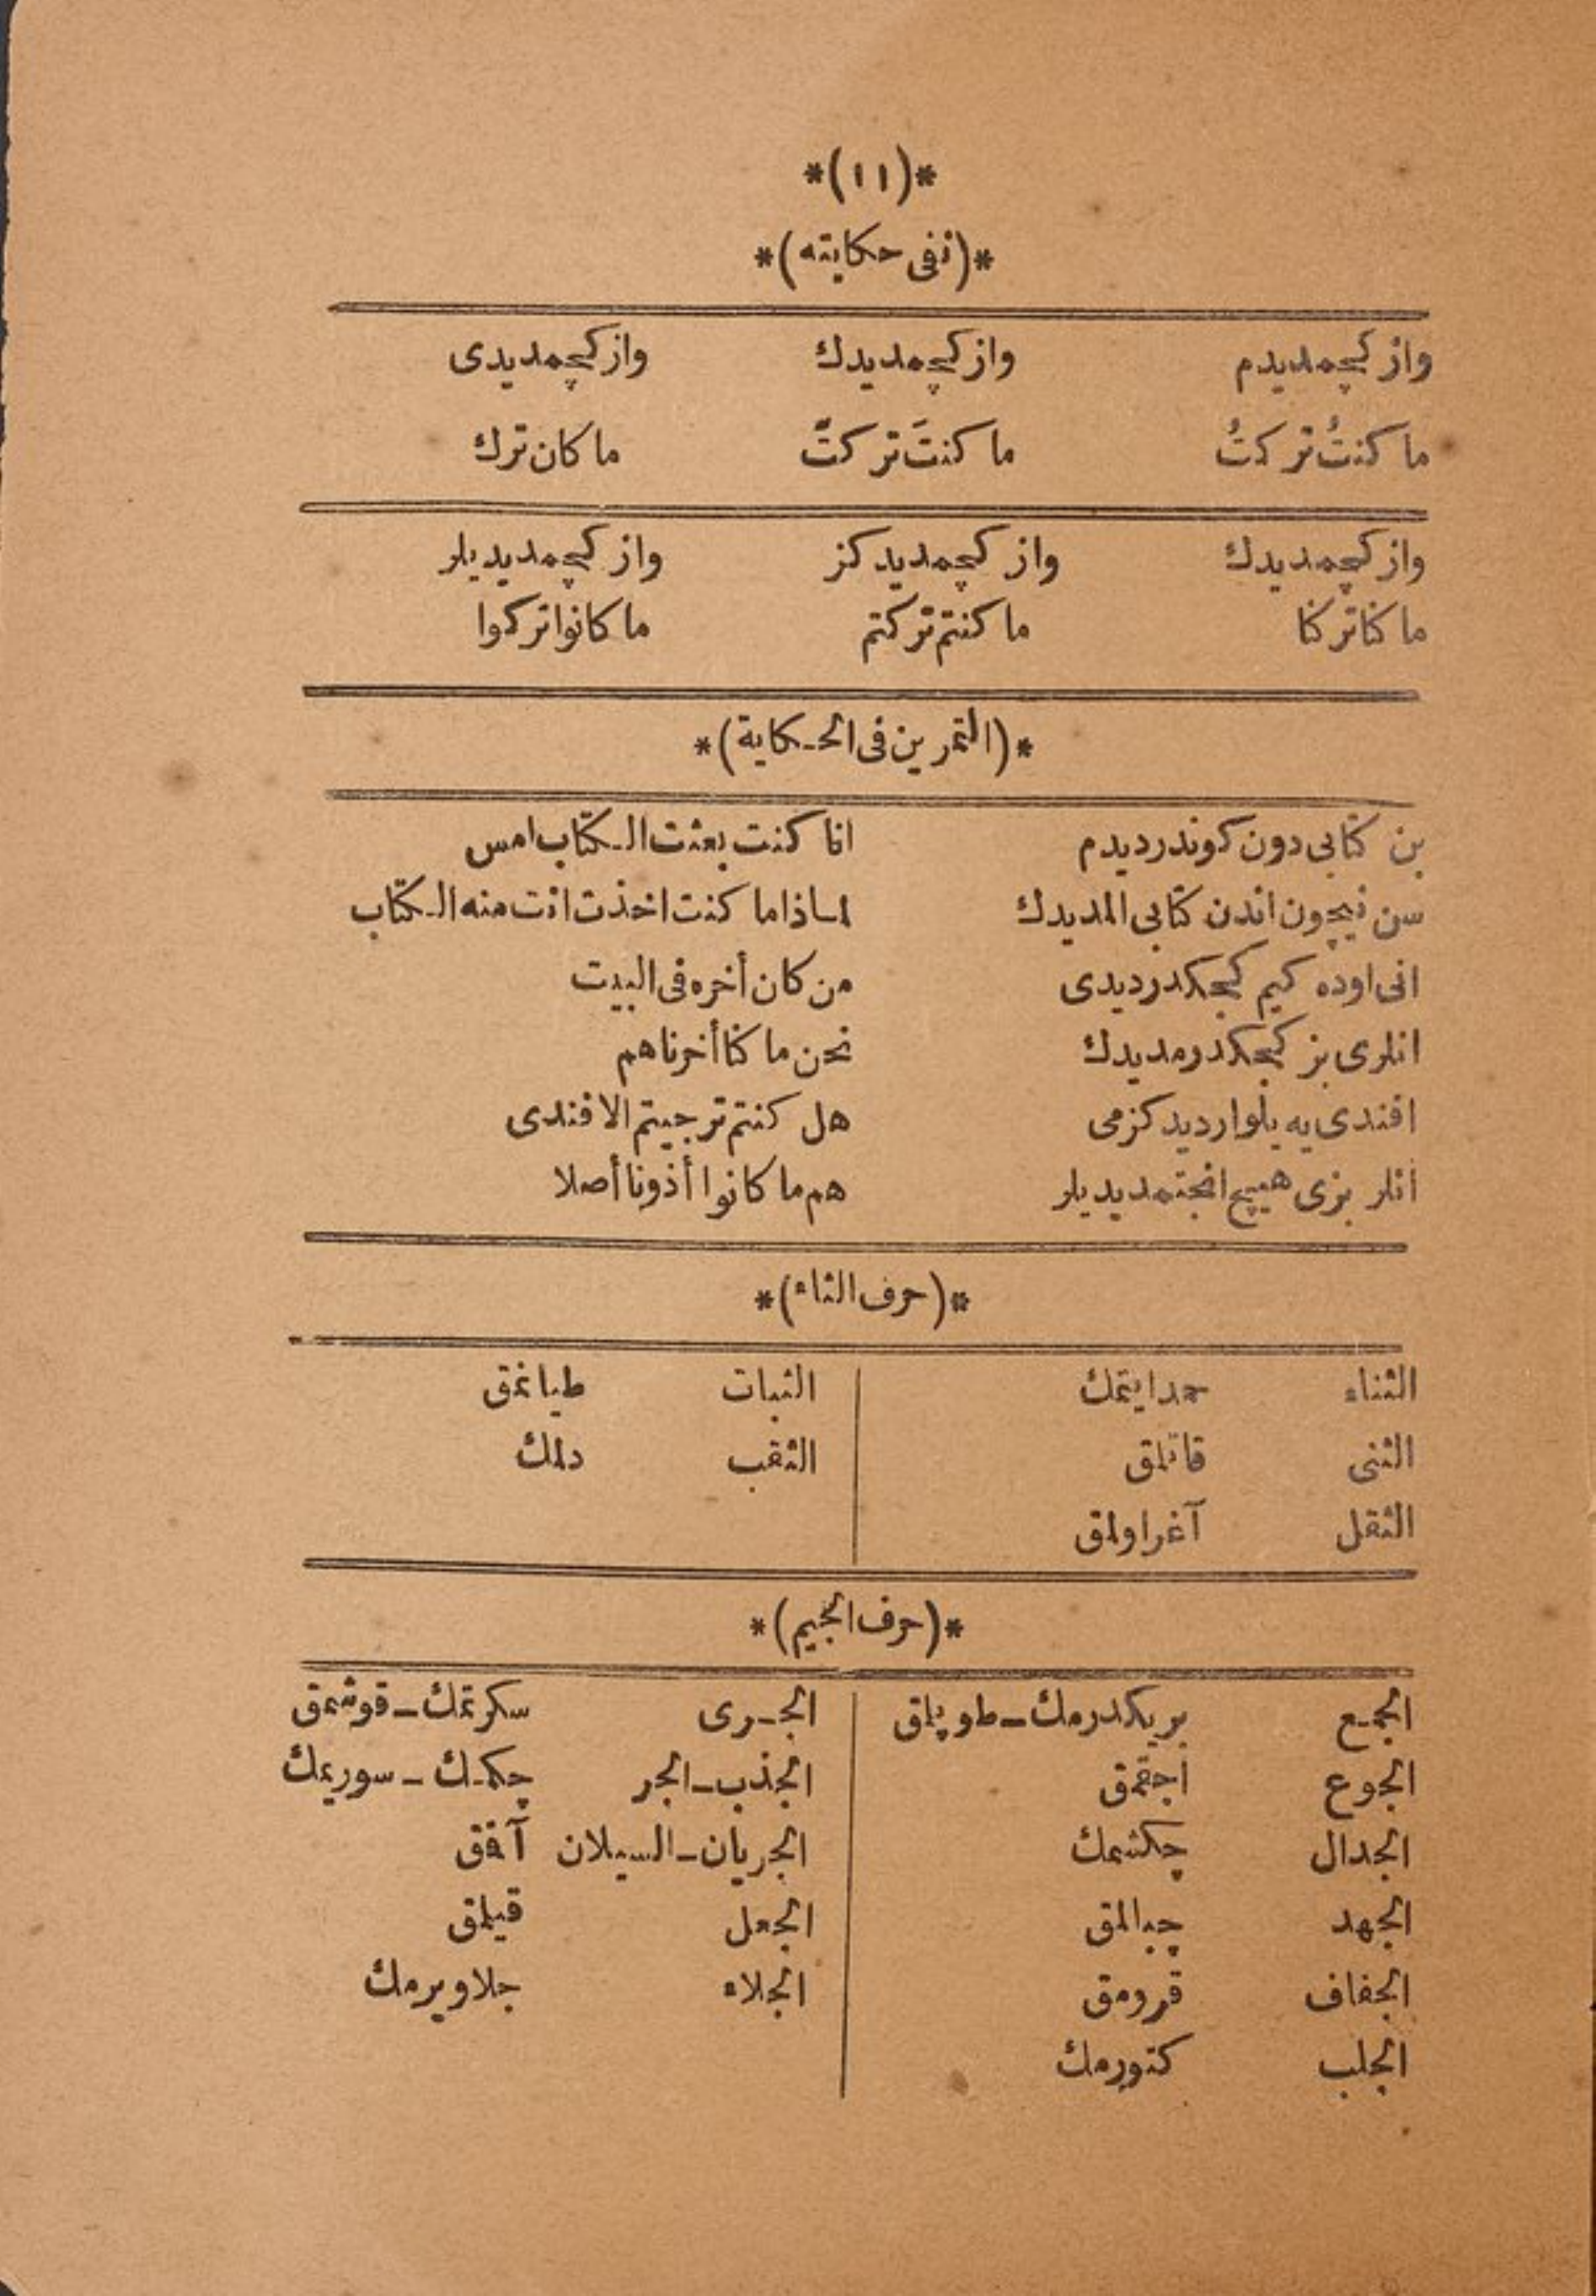 *(١١)*
*(نفى حكايته)*
واز كچمديدم واز كچمديدك واز كچمديدى
ما كنتُ تركتُ ما كنتَ تركتَ ما كان ترك
واز كچمديدك واز كچمديدكز واز كچمديديلر
ما كنا تركنا ما كنتم تركتم ما كانوا تركوا
*(التمرين فى الحكاية)*
بن كتابى دون كوندرديدم انا كنت بعثت الكتاب امس
سن نيچون اندن كتابى المديدك لماذا ما كنت اخذت انت منه الكتاب
انى اوده كيم كجكدرديدى من كان أخره فى البيت
انلرى بز كجكدرمديدك نحن ما كنا أخرناهم
افندى يه يلوارديدكزمى هل كنتم ترجيتم الافندى
انلر بزى هيچ انجتمديديلر هم ما كانوا أذونا أصلا
*(حرف الثاء)*
الثناء حمد ايتمك الثبات طيانمق
الثنى قاتلمق الثقب دلمك
الثقل آغر اولمق
*(حرف الجيم)*
الجمع بريكدرمك ـ طوپلمق الجرى سكرتمك ـ قوشمق
الجوع اجقمق الجذب ـ الجر چكمك ـ سوريمك
الجدال چكشمك الجريان ـ السيلان آقمق
الجهد چبالمق الجعل قيلمق
الجفاف قرومق الجلاء جلا ويرمك
الجلب كتورمك